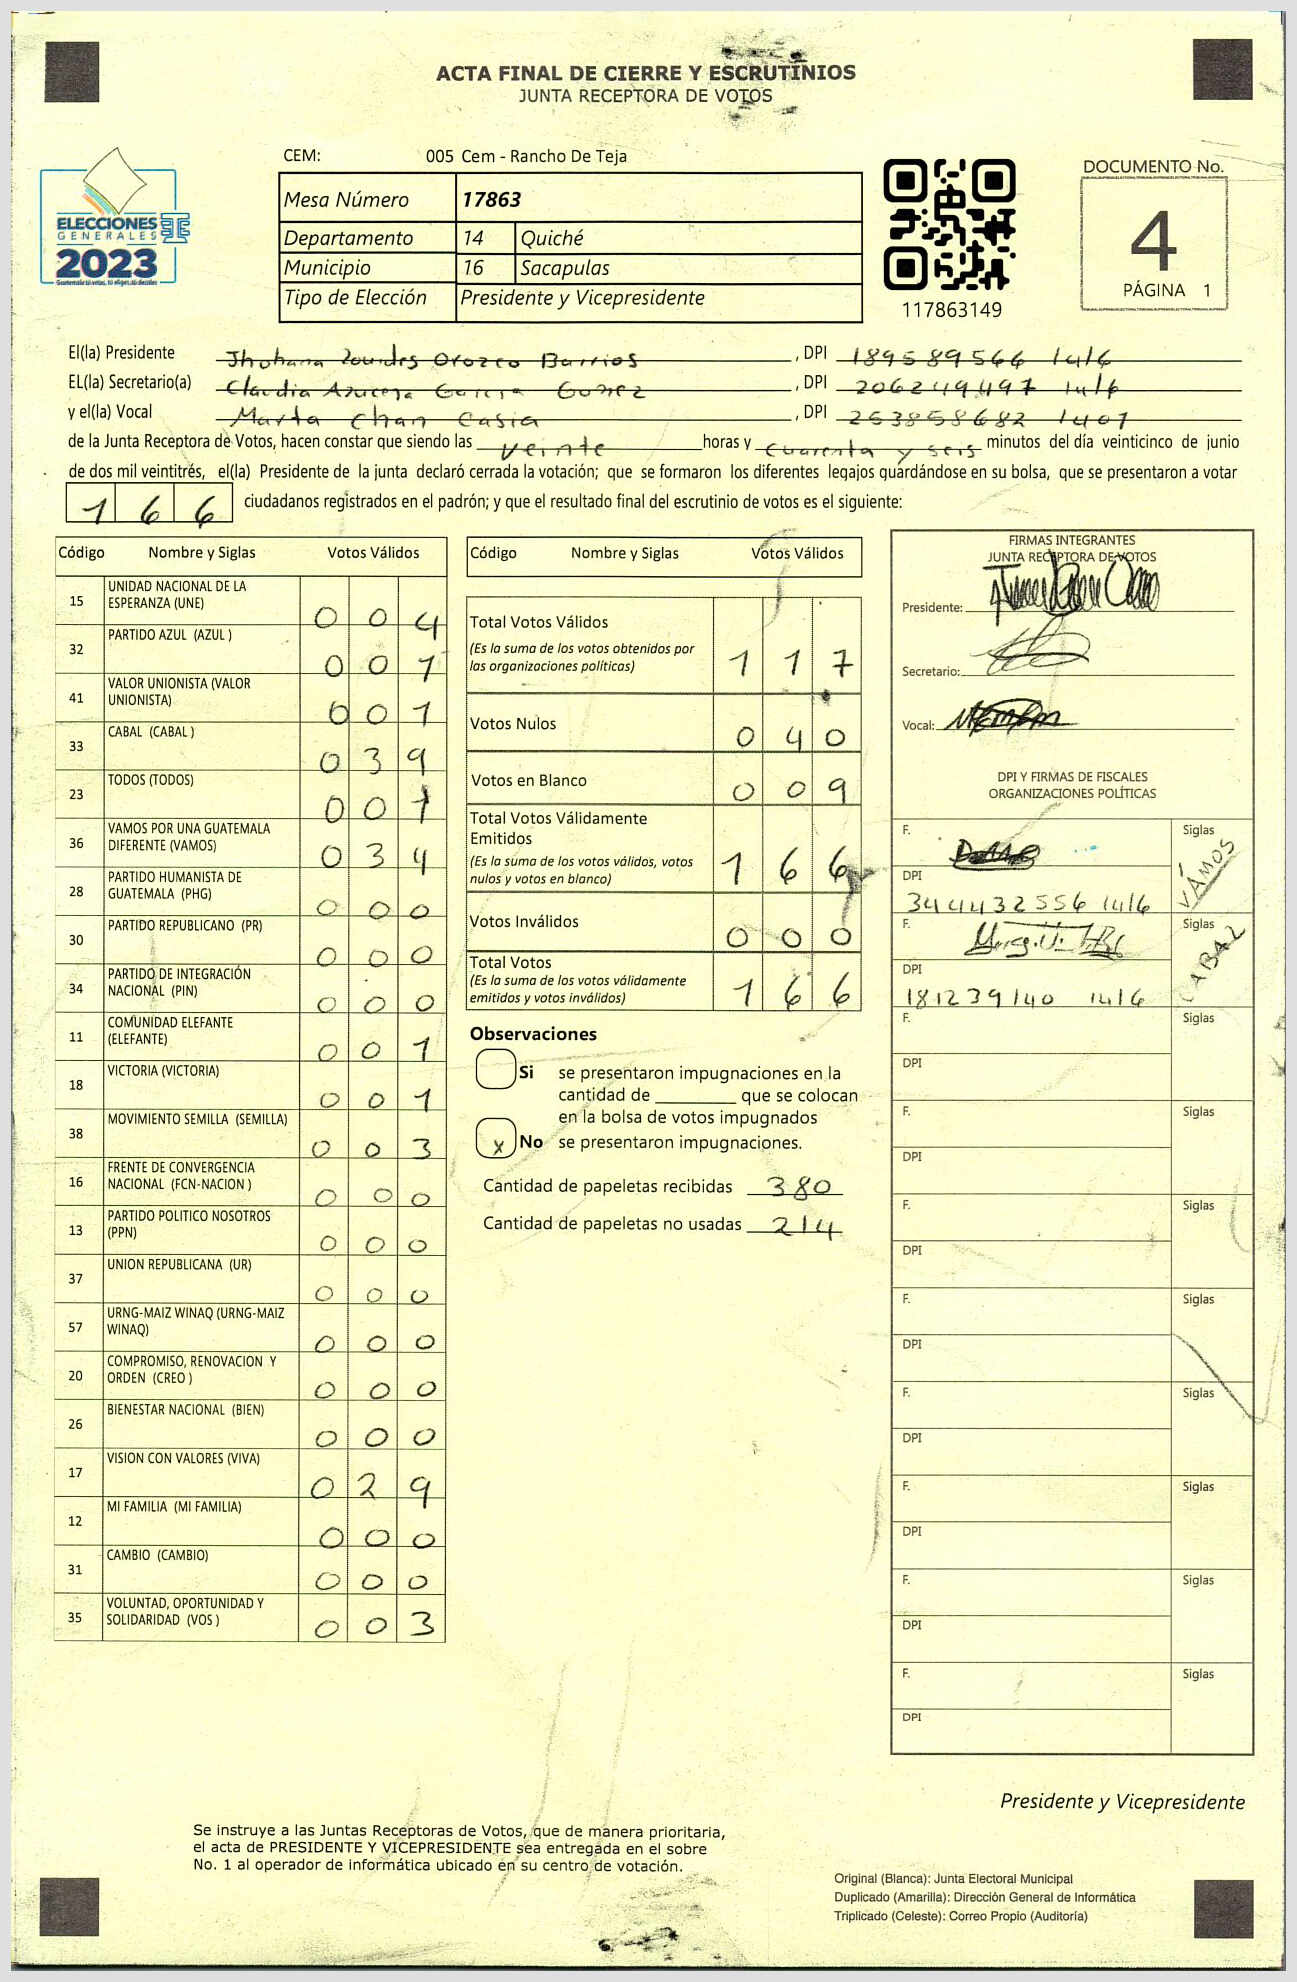 ACTA FINAL DE CIERRE Y ESCRUTINIOS
JUNTA RECEPTORA DE VOTOS
CEM: 005 Cem - Rancho De Teja
Mesa Número 17863
Departamento 14 Quiché
Municipio 16 Sacapulas
Tipo de Elección Presidente y Vicepresidente
ELECCIONES
GENERALES
2023
117863149
DOCUMENTO No.
4
PÁGINA 1
El(la) Presidente Jhohana Lourdes Orozco Barrios, DPI 189589566 1416
EL(la) Secretario(a) Claudia Azucena Garcia Gomez, DPI 206249497 1416
y el(la) Vocal Marta Chan Casia, DPI 253858682 1407
de la Junta Receptora de Votos, hacen constar que siendo las veinte horas y cuarenta y seis minutos del día veinticinco de junio
de dos mil veintitrés, el(la) Presidente de la junta declaró cerrada la votación; que se formaron los diferentes legajos guardándose en su bolsa, que se presentaron a votar
166 ciudadanos registrados en el padrón; y que el resultado final del escrutinio de votos es el siguiente:
Código Nombre y Siglas Votos Válidos
15 UNIDAD NACIONAL DE LA ESPERANZA (UNE) 004
32 PARTIDO AZUL (AZUL ) 001
41 VALOR UNIONISTA (VALOR UNIONISTA) 001
33 CABAL (CABAL ) 039
23 TODOS (TODOS) 001
36 VAMOS POR UNA GUATEMALA DIFERENTE (VAMOS) 034
28 PARTIDO HUMANISTA DE GUATEMALA (PHG) 000
30 PARTIDO REPUBLICANO (PR) 000
34 PARTIDO DE INTEGRACIÓN NACIONAL (PIN) 000
11 COMUNIDAD ELEFANTE (ELEFANTE) 001
18 VICTORIA (VICTORIA) 001
38 MOVIMIENTO SEMILLA (SEMILLA) 003
16 FRENTE DE CONVERGENCIA NACIONAL (FCN-NACION ) 000
13 PARTIDO POLITICO NOSOTROS (PPN) 000
37 UNION REPUBLICANA (UR) 000
57 URNG-MAIZ WINAQ (URNG-MAIZ WINAQ) 000
20 COMPROMISO, RENOVACION Y ORDEN (CREO ) 000
26 BIENESTAR NACIONAL (BIEN) 000
17 VISION CON VALORES (VIVA) 029
12 MI FAMILIA (MI FAMILIA) 000
31 CAMBIO (CAMBIO) 000
35 VOLUNTAD, OPORTUNIDAD Y SOLIDARIDAD (VOS ) 003
Código Nombre y Siglas Votos Válidos
Total Votos Válidos 117
(Es la suma de los votos obtenidos por
las organizaciones políticas)
Votos Nulos 040
Votos en Blanco 009
Total Votos Válidamente
Emitidos 166
(Es la suma de los votos válidos, votos
nulos y votos en blanco)
Votos Inválidos 000
Total Votos 166
(Es la suma de los votos válidamente
emitidos y votos inválidos)
Observaciones
Si se presentaron impugnaciones en la
cantidad de ________ que se colocan
en la bolsa de votos impugnados
x No se presentaron impugnaciones.
Cantidad de papeletas recibidas 380
Cantidad de papeletas no usadas 214
FIRMAS INTEGRANTES
JUNTA RECEPTORA DE VOTOS
Presidente:
Secretario:
Vocal:
DPI Y FIRMAS DE FISCALES
ORGANIZACIONES POLÍTICAS
F. Siglas VAMOS
DPI 344432556 1416
F. Siglas CABAL
DPI 181239140 1416
F. Siglas
DPI
F. Siglas
DPI
F. Siglas
DPI
F. Siglas
DPI
F. Siglas
DPI
F. Siglas
DPI
F. Siglas
DPI
F. Siglas
DPI
Presidente y Vicepresidente
Se instruye a las Juntas Receptoras de Votos, que de manera prioritaria,
el acta de PRESIDENTE Y VICEPRESIDENTE sea entregada en el sobre
No. 1 al operador de informática ubicado en su centro de votación.
Original (Blanca): Junta Electoral Municipal
Duplicado (Amarilla): Dirección General de Informática
Triplicado (Celeste): Correo Propio (Auditoría)